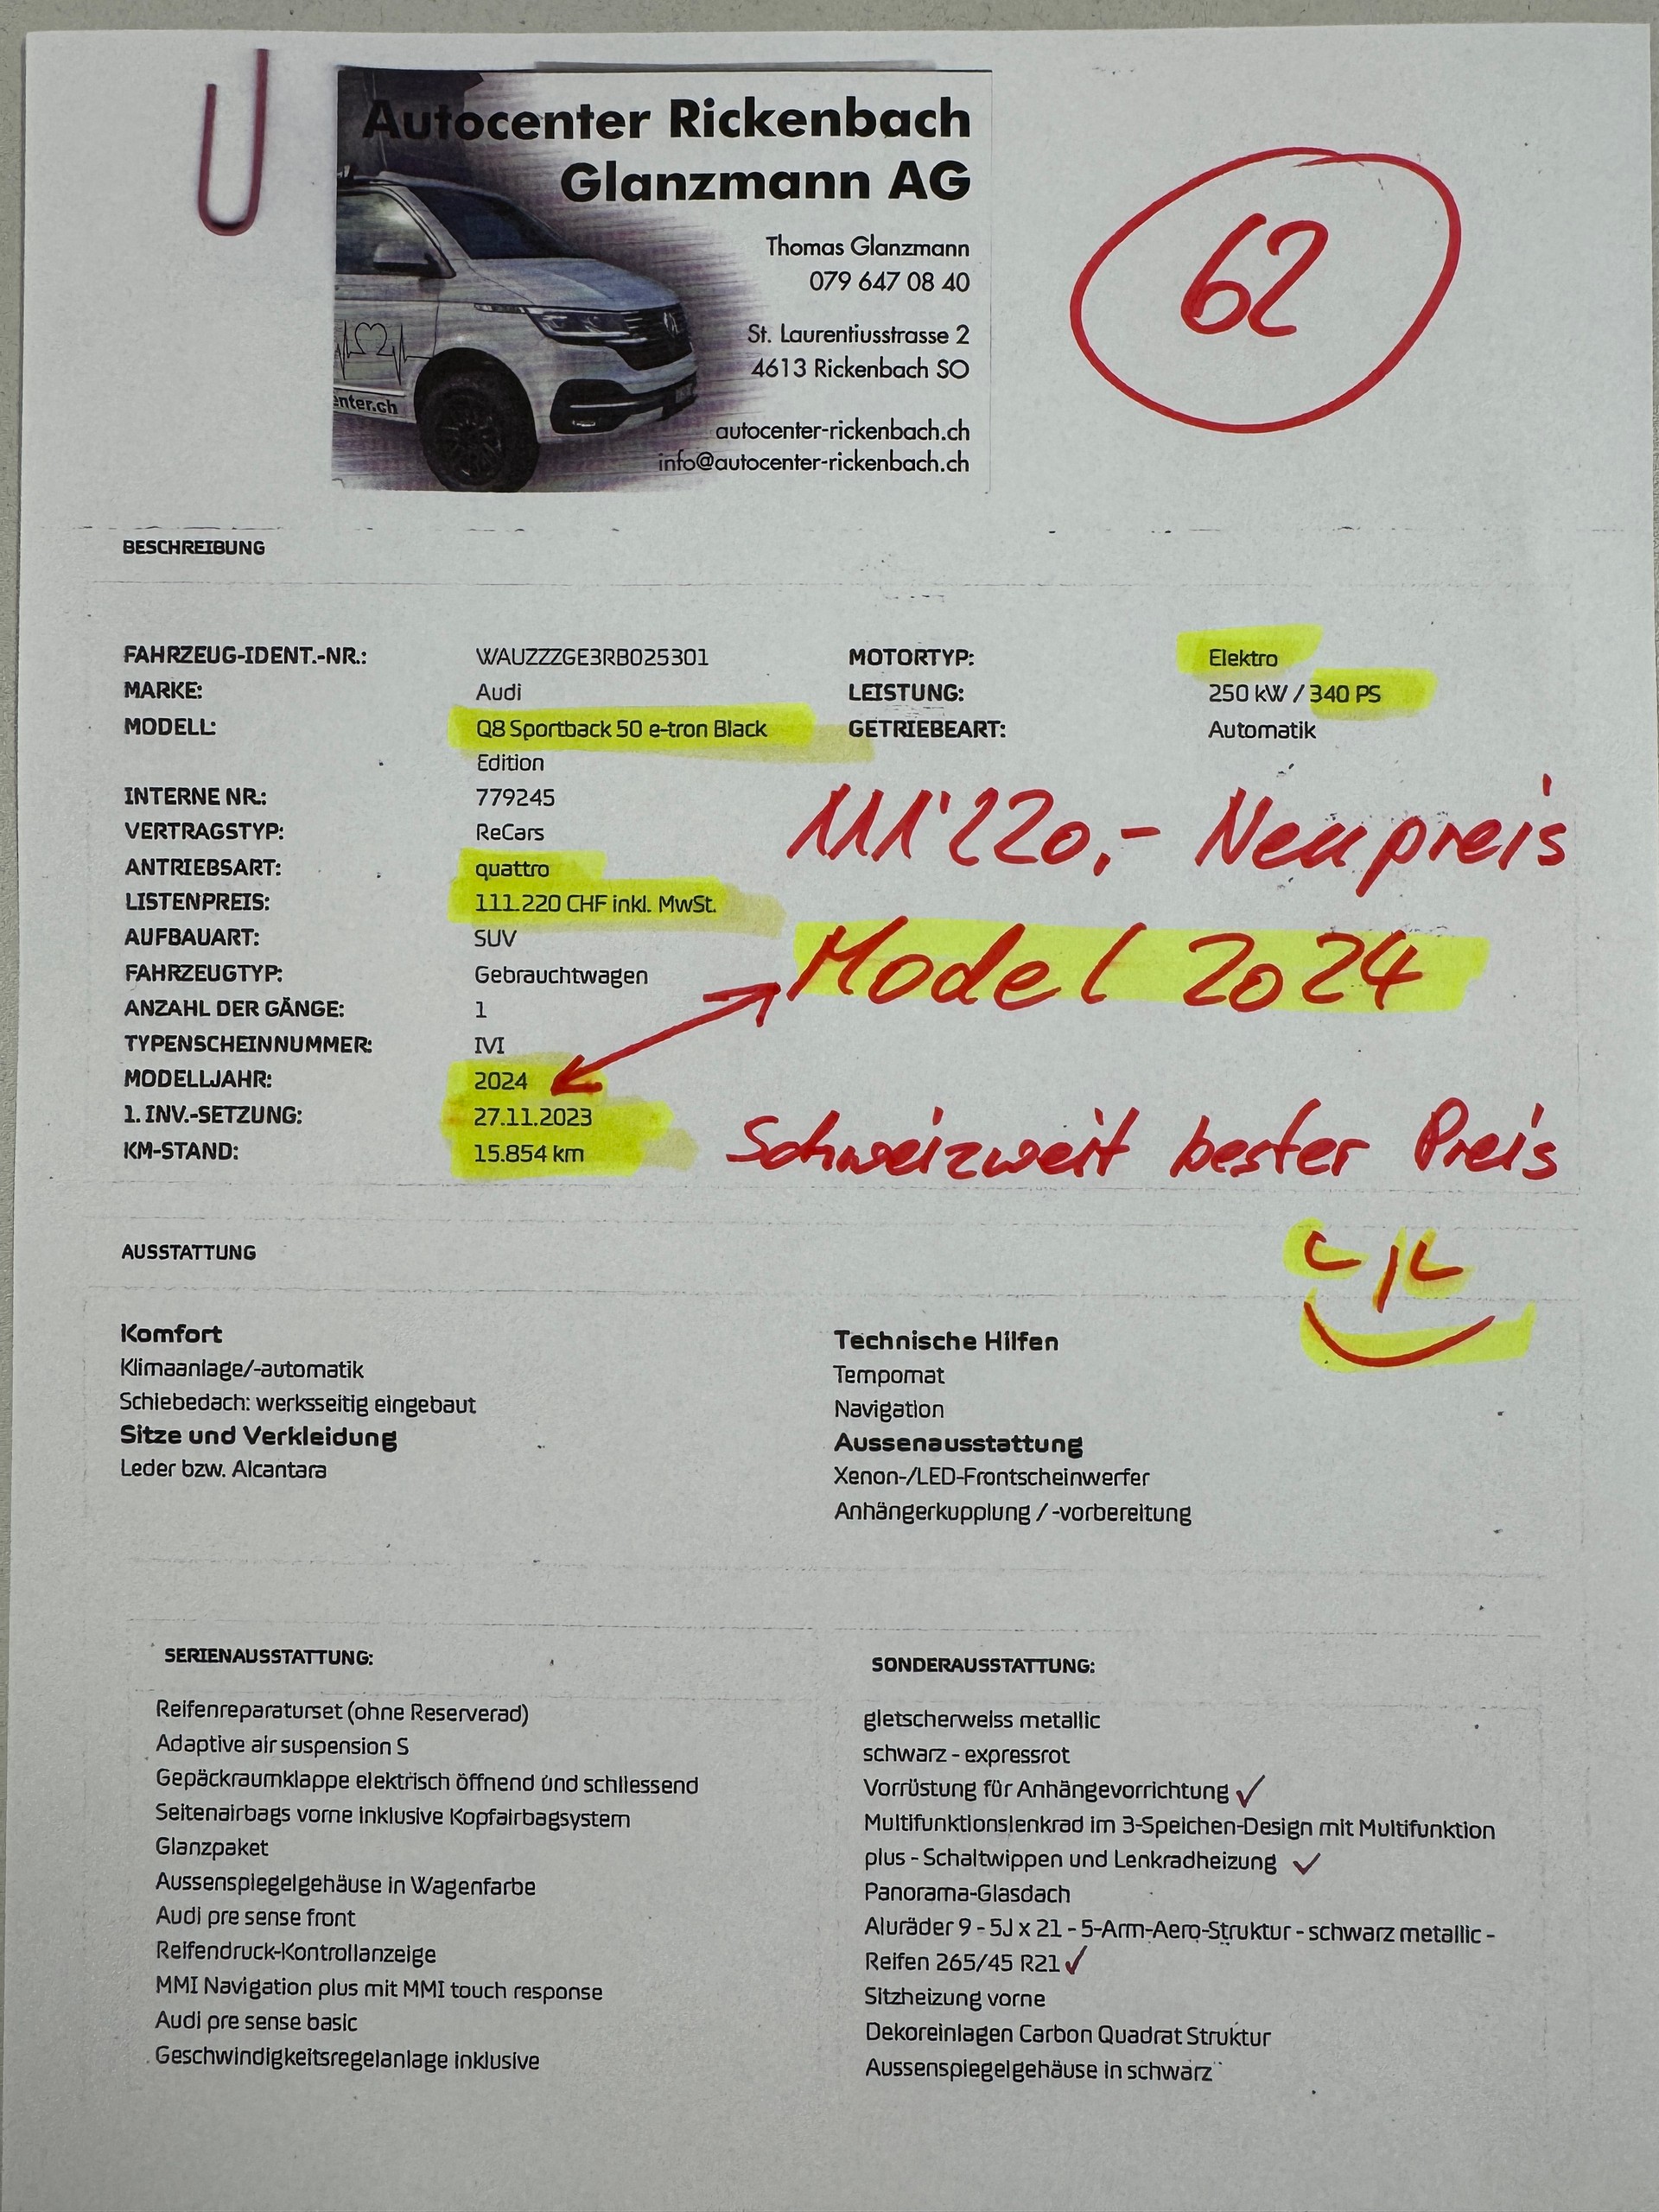 Autocenter Rickenbach
Glanzmann AG
Thomas Glanzmann
079 647 08 40
St. Laurentiusstrasse 2
4613 Rickenbach SO
enter.ch
autocenter-rickenbach.ch
info@autocenter-rickenbach.ch
62
BESCHREIBUNG
FAHRZEUG-IDENT.-NR.: WAUZZZGE3RB025301
MARKE: Audi
MODELL: Q8 Sportback 50 e-tron Black
Edition
INTERNE NR.: 779245
VERTRAGSTYP: ReCars
ANTRIEBSART: quattro
LISTENPREIS: 111.220 CHF inkl. MwSt.
AUFBAUART: SUV
FAHRZEUGTYP: Gebrauchtwagen
ANZAHL DER GÄNGE: 1
TYPENSCHEINNUMMER: IVI
MODELLJAHR: 2024
1. INV.-SETZUNG: 27.11.2023
KM-STAND: 15.854 km
MOTORTYP: Elektro
LEISTUNG: 250 kW / 340 PS
GETRIEBEART: Automatik
111'220.- Neupreis
Model 2024
Schweizweit bester Preis
AUSSTATTUNG
Komfort
Klimaanlage/-automatik
Schiebedach: werksseitig eingebaut
Sitze und Verkleidung
Leder bzw. Alcantara
Technische Hilfen
Tempomat
Navigation
Aussenausstattung
Xenon-/LED-Frontscheinwerfer
Anhängerkupplung / -vorbereitung
SERIENAUSSTATTUNG:
Reifenreparaturset (ohne Reserverad)
Adaptive air suspension S
Gepäckraumklappe elektrisch öffnend und schliessend
Seitenairbags vorne inklusive Kopfairbagsystem
Glanzpaket
Aussenspiegelgehäuse in Wagenfarbe
Audi pre sense front
Reifendruck-Kontrollanzeige
MMI Navigation plus mit MMI touch response
Audi pre sense basic
Geschwindigkeitsregelanlage inklusive
SONDERAUSSTATTUNG:
gletscherweiss metallic
schwarz - expressrot
Vorrüstung für Anhängevorrichtung ✓
Multifunktionslenkrad im 3-Speichen-Design mit Multifunktion
plus - Schaltwippen und Lenkradheizung ✓
Panorama-Glasdach
Aluräder 9 - 5J x 21 - 5-Arm-Aero-Struktur - schwarz metallic -
Reifen 265/45 R21 ✓
Sitzheizung vorne
Dekoreinlagen Carbon Quadrat Struktur
Aussenspiegelgehäuse in schwarz